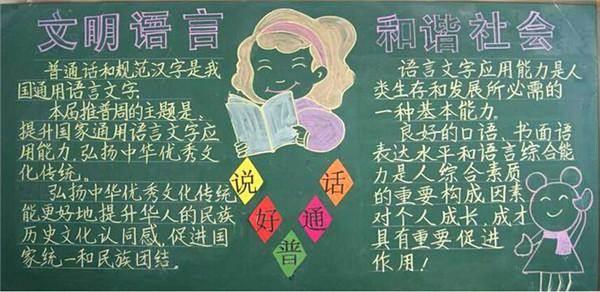 文明语言
普通话和规范汉字是我
国通用语言文字.
本届推普周的主题是:
提升国家通用语言文字应
用能力,弘扬中华优秀文
化传统。
弘扬中华优秀文化传统
能更好地提升华人的民族
历史文化认同感,促进国
家统一和民族团结。
说好普通话
和谐社会
语言文字应用能力是人
类生存和发展所必需的
一种基本能力。
良好的口语、书面语
表达水平和语言综合能
力是人综合素质
的重要构成因素
对个人成长、成才
具有重要促进
作用!